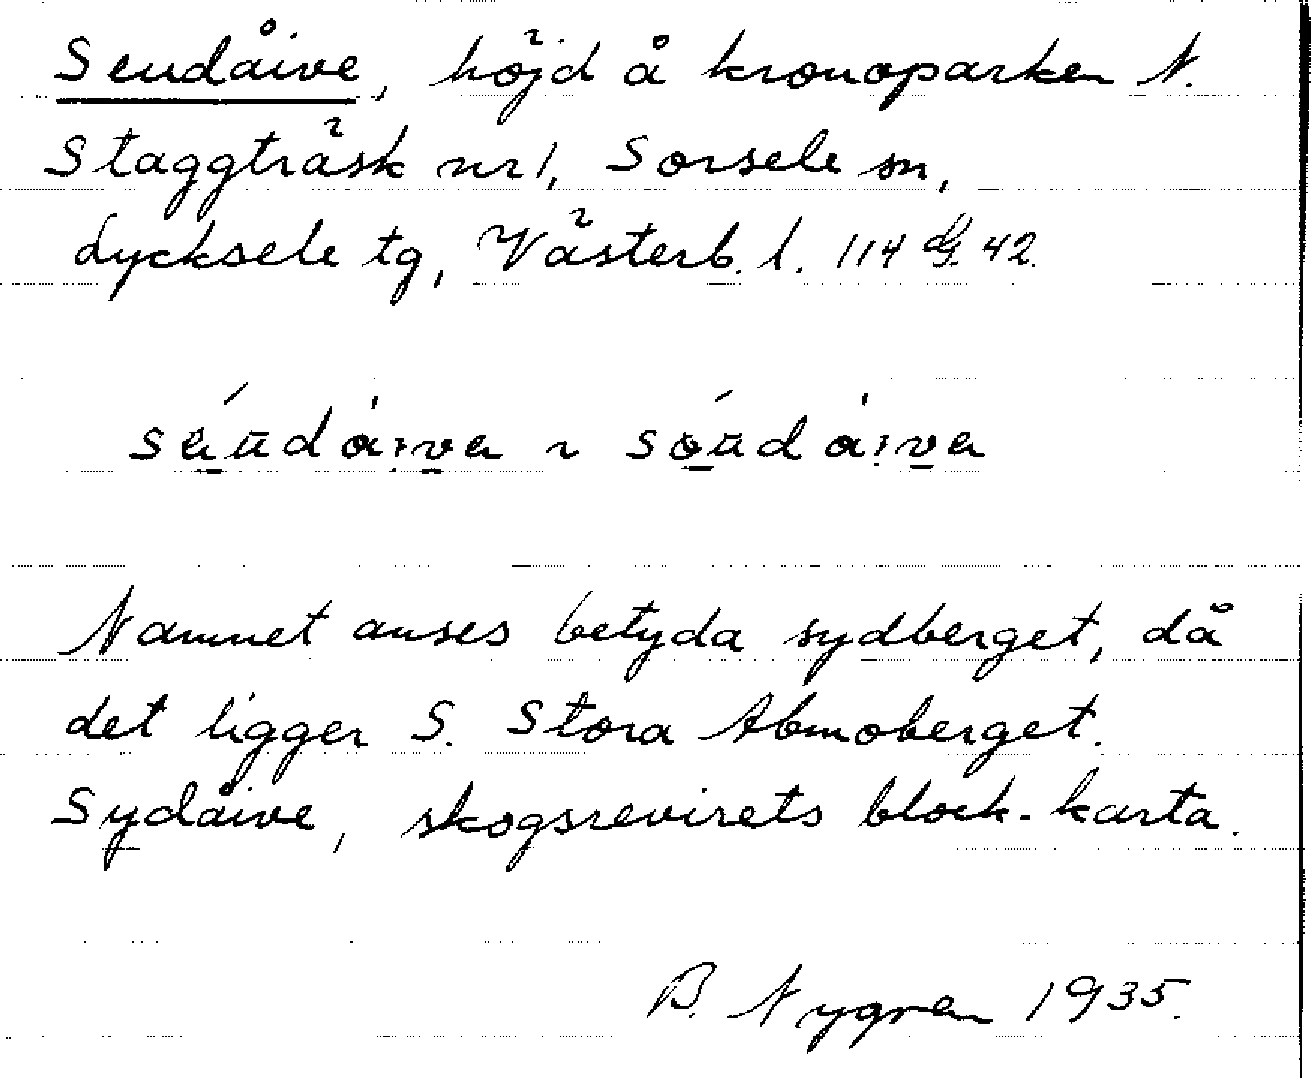 Seudåive, höjd å kronoparken N.
Staggträsk nr 1, Sorsele sn,
Lycksele tg, Västerb. l. 114 G. 42.
séu̅dȧi̯va ~ sóu̅dȧi̯va
Namnet anses betyda sydberget, då
det ligger S. Stora Abmoberget.
Sydåive, skogsrevirets block-karta.
B. Nygren 1935.